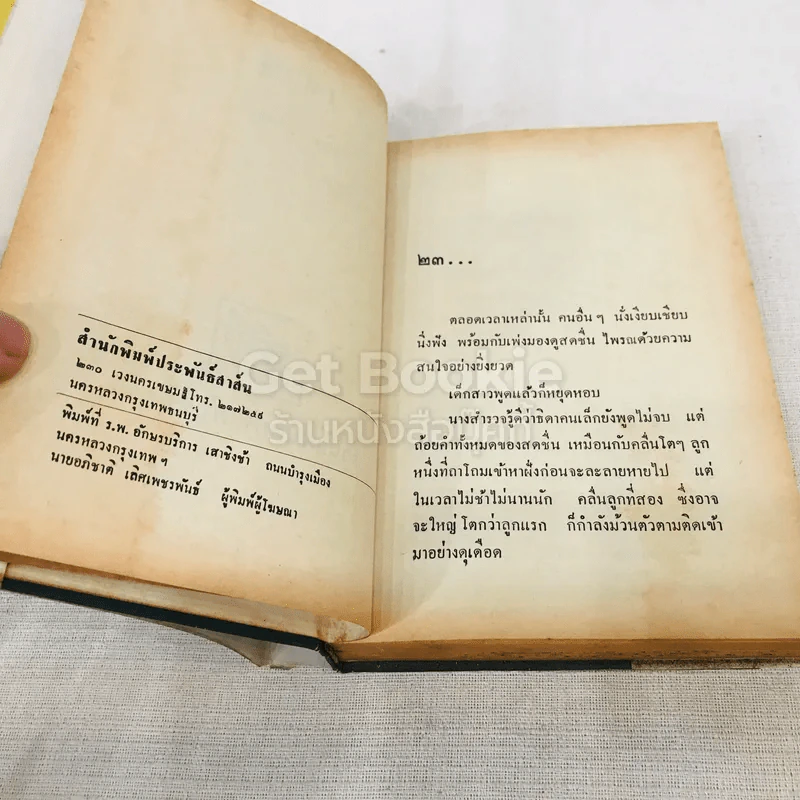 สำนักพิมพ์ประพันธ์สาส์น
๒๓๐ เวงนครเขษม โทร. ๒๑๗๒๕๘
นครหลวงกรุงเทพธนบุรี
พิมพ์ที่ ร.พ. อักษรบริการ เสาชิงช้า ถนนบำรุงเมือง
นครหลวงกรุงเทพฯ
นายอภิชาติ เลิศเพชรพันธ์ ผู้พิมพ์ผู้โฆษณา
๒๓...
ตลอดเวลาเหล่านั้น คนอื่น ๆ นั่งเงียบเชียบ
นิ่งฟัง พร้อมกับเพ่งมองดูสดชื่น ไพรณด้วยความ
สนใจอย่างยิ่งยวด
เด็กสาวพูดแล้วก็หยุดหอบ
นางสำรวจรู้ดีว่าธิดาคนเล็กยังพูดไม่จบ แต่
ถ้อยคำทั้งหมดของสดชื่น เหมือนกับคลื่นโตๆ ลูก
หนึ่งที่ถาโถมเข้าหาฝั่งก่อนจะละลายหายไป แต่
ในเวลาไม่ช้าไม่นานนัก คลื่นลูกที่สอง ซึ่งอาจ
จะใหญ่โตกว่าลูกแรก ก็กำลังม้วนตัวตามติดเข้า
มาอย่างดุเดือด
Get Bookie
ร้านหนังสือมือสอง